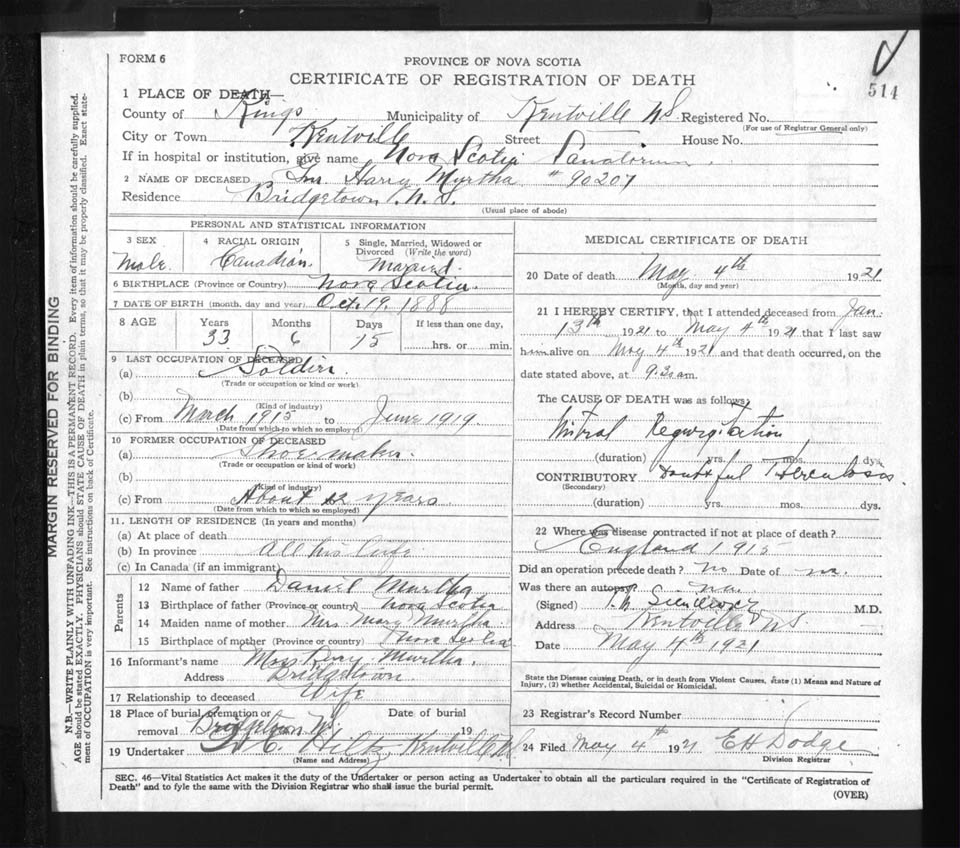 FORM 6
514
PROVINCE OF NOVA SCOTIA
CERTIFICATE OF REGISTRATION OF DEATH
1 PLACE OF DEATH—
County of Kings Municipality of Kentville N.S. Registered No.
(For use of Registrar General only)
City or Town Kentville Street House No.
If in hospital or institution, give name Nova Scotia Sanatorium
2 NAME OF DECEASED Harry Murtha # 90207
Residence Bridgetown N.S.
(Usual place of abode)
PERSONAL AND STATISTICAL INFORMATION
3 SEX 4 RACIAL ORIGIN 5 Single, Married, Widowed or Divorced (Write the word)
Male Canadian Married
6 BIRTHPLACE (Province or Country) Nova Scotia
7 DATE OF BIRTH (month, day and year) Oct. 19, 1888
8 AGE Years Months Days If less than one day,
33 6 15 hrs. or min.
9 LAST OCCUPATION OF DECEASED
(a) Soldier
(Trade or occupation or kind or work)
(b)
(Kind of industry)
(c) From March 1915 to June 1919
(Date from which to which so employed)
10 FORMER OCCUPATION OF DECEASED
(a) Shoe maker
(Trade or occupation or kind of work)
(b)
(Kind of industry)
(c) From About 12 years
(Date from which to which so employed)
11. LENGTH OF RESIDENCE (In years and months)
(a) At place of death
(b) In province all his life
(c) In Canada (if an immigrant)
Parents
12 Name of father Daniel Murtha
13 Birthplace of father (Province or country) Nova Scotia
14 Maiden name of mother Mrs. Mary Murtha
15 Birthplace of mother (Province or country) Nova Scotia
16 Informant's name Murtha
Address Bridgetown
17 Relationship to deceased Wife
18 Place of burial, cremation or removal Bridgetown N.S. Date of burial 19
19 Undertaker Kentville N.S.
(Name and Address)
MEDICAL CERTIFICATE OF DEATH
20 Date of death May 4th 1921
(Month, day and year)
21 I HEREBY CERTIFY, that I attended deceased from Jan.
13th 1921 to May 4th 1921 that I last saw
him alive on May 4th 1921 and that death occurred, on the
date stated above, at 9.30 am.
The CAUSE OF DEATH was as follows:
Mitral Regurgitation
(duration) yrs. mos. dys.
CONTRIBUTORY Doubtful Tuberculosis
(Secondary)
(duration) yrs. mos. dys.
22 Where was disease contracted if not at place of death?
England 1915
Did an operation precede death? no Date of
Was there an autopsy?
(Signed) M.D.
Address Kentville N.S.
Date May 4th 1921
State the Disease causing Death, or in death from Violent Causes, state (1) Means and Nature of
Injury, (2) whether Accidental, Suicidal or Homicidal.
23 Registrar's Record Number
24 Filed May 4th 1921 E H Dodge
Division Registrar
SEC. 46—Vital Statistics Act makes it the duty of the Undertaker or person acting as Undertaker to obtain all the particulars required in the "Certificate of Registration of
Death" and to fyle the same with the Division Registrar who shall issue the burial permit.
(OVER)
MARGIN RESERVED FOR BINDING
N.B.—WRITE PLAINLY WITH UNFADING INK—THIS IS A PERMANENT RECORD. Every item of information should be carefully supplied.
AGE should be stated EXACTLY. PHYSICIANS should STATE CAUSE OF DEATH in plain terms, so that it may be properly classified. Exact state-
ment of OCCUPATION is very important. See instructions on back of Certificate.